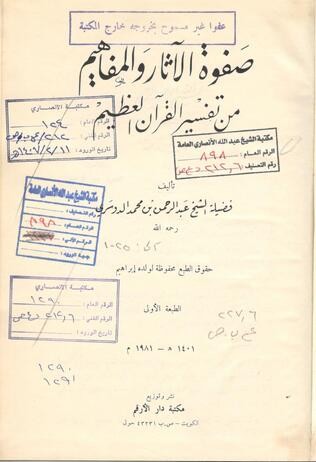 عفوا غير مسموح بخروجه خارج المكتبة
صفوة الآثار والمفاهيم
من تفسير القرآن العظيم
مكتبة الانصاري
الرقم العام:
الرقم الفني:
تاريخ الورود: ١٤٠٧/٢/١١هـ
مكتبة الشيخ عبد الله الأنصاري العامة
الرقم العام: ٨٩٨
رقم التصنيف: ٢١٢,٦
تأليف
فضيلة الشيخ عبد الرحمن بن محمد الدوسري
رحمه الله
مكتبة الشيخ عبد الله الأنصاري العامة
رقم التصنيف:
الرقم العام: ٨٩٨
جهة الورود:
حقوق الطبع محفوظة لولده إبراهيم
مكتبة الانصاري
الرقم العام: ١٢٩٠
الرقم الفني: ٢١٢,٦
تاريخ الورود:
الطبعة الأولى
٢٢٧,٦
١٤٠١ هـ - ١٩٨١ م
١٢٩٠
١٢٩١
نشر وتوزيع
مكتبة دار الأرقم
الكويت - ص.ب ٤٣٢٣١ حولي